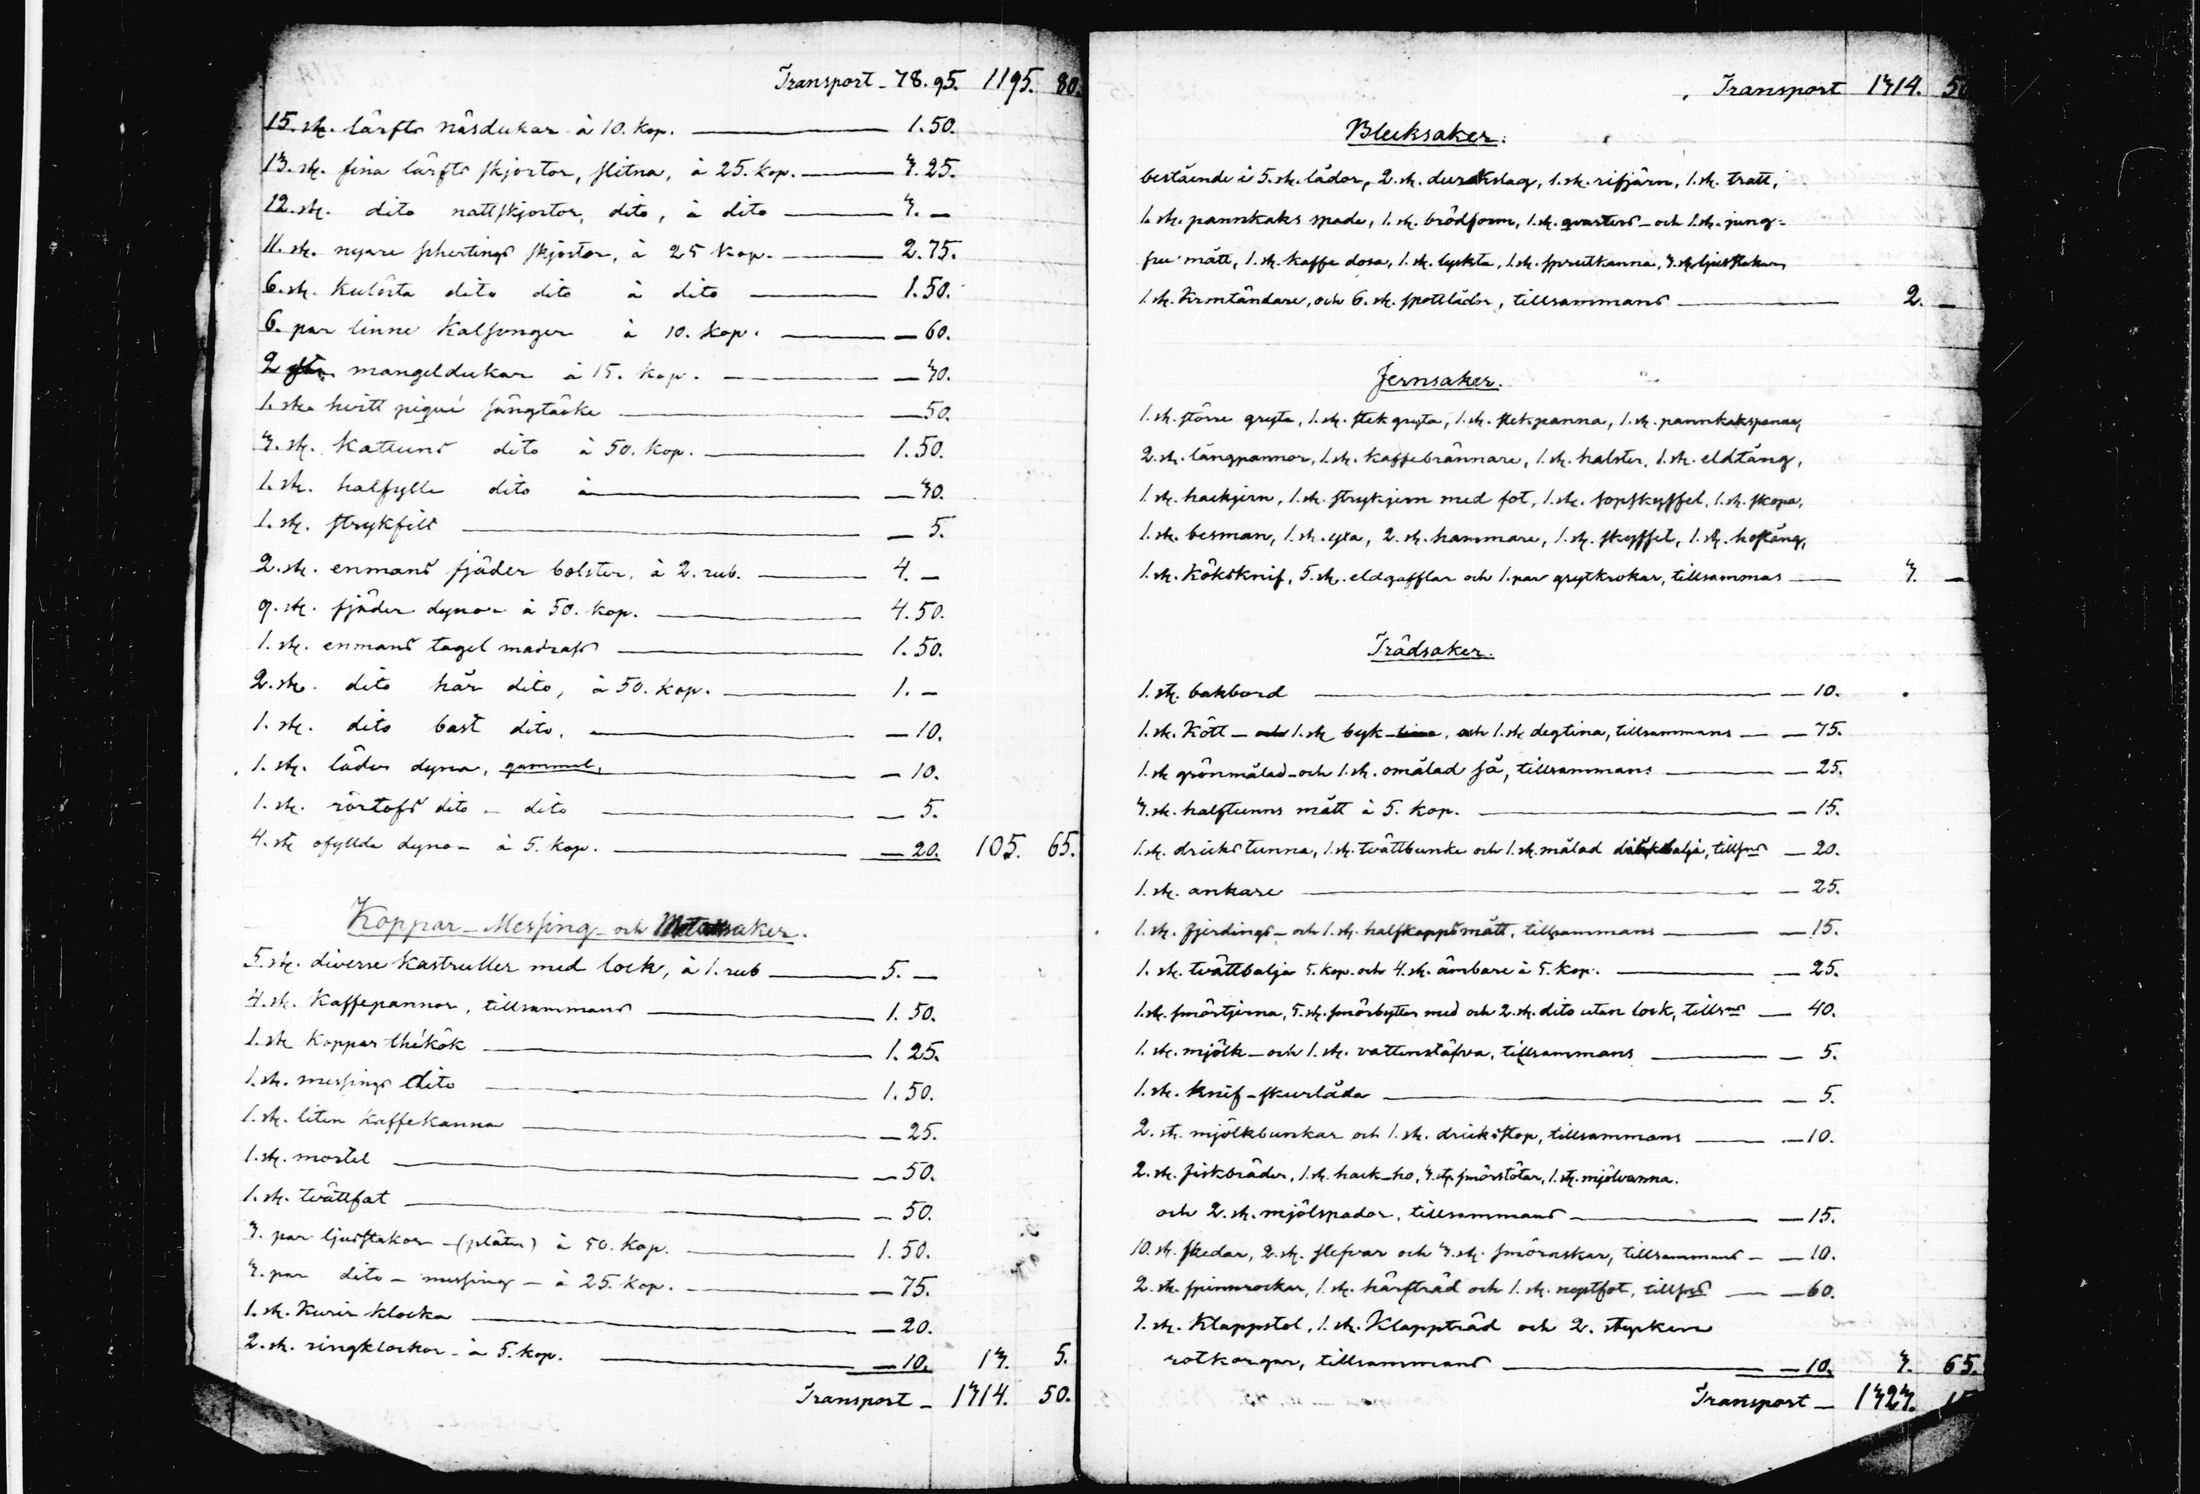 Transport - 78.95. 1195. 80.
15. st. lärfts näsdukar à 10. kop. — 1.50.
13. st. fina lärfts skjortor, slitna, à 25. kop. — 3.25.
12. st. dito nattskjortor, dito, à dito — 3. —
11. st. nyare schertings skjortor, à 25 kop. — 2.75.
6. st. kulörta dito dito à dito — 1.50.
6. par linne kalsonger à 10. kop. — 60.
2 mangeldukar à 15. kop. — 30.
1. st. hvitt piqué sängtäcke — 50.
3. st. kattuns dito à 50. kop. — 1.50.
1. st. halfylle dito à — 30.
1. st. strykfilt — 5.
2. st. enmans fjäder bolster, à 2. rub. — 4. —
9. st. fjäder dynor à 50. kop. — 4.50.
1. st. enmans tagel madrass — 1.50.
2. st. dito hår dito, à 50. kop. — 1. —
1. st. dito bast dito. — 10.
1. st. läder dyna, gammal, — 10.
1. st. rörtofs dito - dito — 5.
4. st. ofyllda dynor à 5. kop. — 20. 105. 65.
Koppar- Messing- och Metallsaker.
5. st. diverse kastruller med lock, à 1. rub — 5. —
4. st. Kaffepannor, tillsammans — 1.50.
1. st. Koppar thékök — 1.25.
1. st. messings dito — 1.50.
1. st. liten Kaffekanna — 25.
1. st. mortel — 50.
1. st. tvättfat — 50.
3. par ljusstakar - (pläter) à 50. kop. — 1.50.
3. par dito - messing - à 25. kop. — 75.
1. st. Kurir klocka — 20.
2. st. ringklockor - à 5. kop. — 10. 13. 5.
Transport - 1314. 50.
Transport 1314. 50
Blecksaker.
bestående i 5. st. lådor, 2. st. durkslag, 1. st. rifjärn, 1. st. tratt,
1. st. pannkaks spade, 1. st. brödform, 1. st. qvarters- och 1. st. jung-
fru mått, 1. st. kaffe dosa, 1. st. lyckta, 1. st. sprutkanna, 3. st. ljusstakar,
1. st. Krontändare, och 6. st. spottlådor, tillsammans — 2. —
Jernsaker.
1. st. större gryta, 1. st. stek gryta, 1. st. stekpanna, 1. st. pannkakspanna,
2. st. långpannor, 1. st. kaffebrännare, 1. st. halster, 1. st. eldtång,
1. st. hackjern, 1. st. strykjern med fot, 1. st. sopskyffel, 1. st. skopa,
1. st. besman, 1. st. yxa, 2. st. hammare, 1. st. skyffel, 1. st. hoftång,
1. st. Köksknif, 5. st. eldgafflar och 1. par grytkrokar, tillsammas — 3. —
Trädsaker.
1. st. bakbord — 10.
1. st. Kött - och 1. st. byk-tina, och 1. st. degtina, tillsammans — 75.
1. st. grönmålad- och 1. st. omålad så, tillsammans — 25.
3. st. halftunns mått à 5. kop. — 15.
1. st. dricks tunna, 1. st. tvättbunke och 1. st. målad balja, tills:ns — 20.
1. st. ankare — 25.
1. st. fjerdings- och 1. st. halfkappsmått, tillsammans — 15.
1. st. tvättbalja 5. kop. och 4. st. ämbare à 5. kop. — 25.
1. st. smörtjerna, 5. st. smörbyttor med och 2. st. dito utan lock, tills:ns — 40.
1. st. mjölk- och 1. st. vattenstäfva, tillsammans — 5.
1. st. knif-skurlåda — 5.
2. st. mjölkbunkar och 1. st. dricksstop, tillsammans — 10.
2. st. fiskbräder, 1. st. hack-ho, 3. st. smörstötar, 1. st. mjölvanna.
och 2. st. mjölspador, tillsammans — 15.
10. st. skedar, 2. st. slefvar och 3. st. smöraskar, tillsammans — 10.
2. st. spinnrockar, 1. st. härfträd och 1. st. noptfot, tills:ns — 60.
1. st. Klappstol, 1. st. Klappträd och 2. stycken
rotkorgar, tillsammans — 10. 3. 65.
Transport — 1323. 15